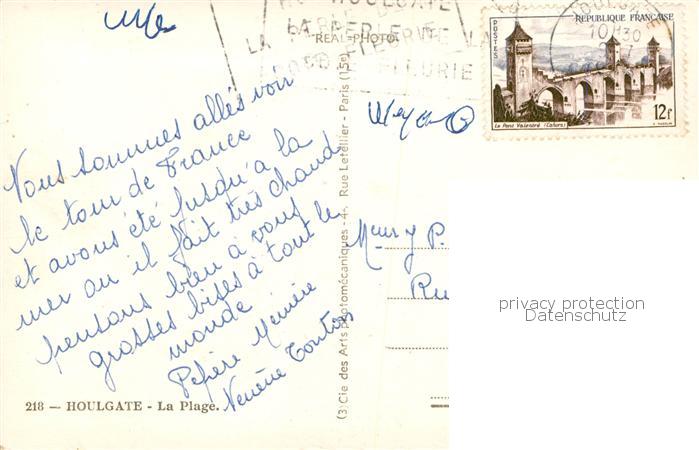 HOULGATE
LA PERLE
FLEURIE
REAL-PHOTO
POSTES
REPUBLIQUE FRANÇAISE
10H30
Le Pont Valentré (Cahors)
12F
Nous sommes allés voir
le tour de France
et avons été jusqu'a la
mer ou il fait très chaud
pensons bien à vous
grosses bises à tout le
monde
Pépère Mémère
Tonton
218 — HOULGATE - La Plage.
(3) Cie des Arts Photomécaniques - 44, Rue Letellier - Paris (15e)
P.
privacy protection
Datenschutz